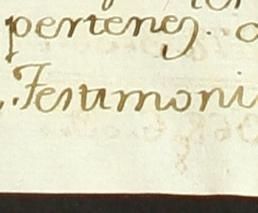 pertenez.
Testimoni